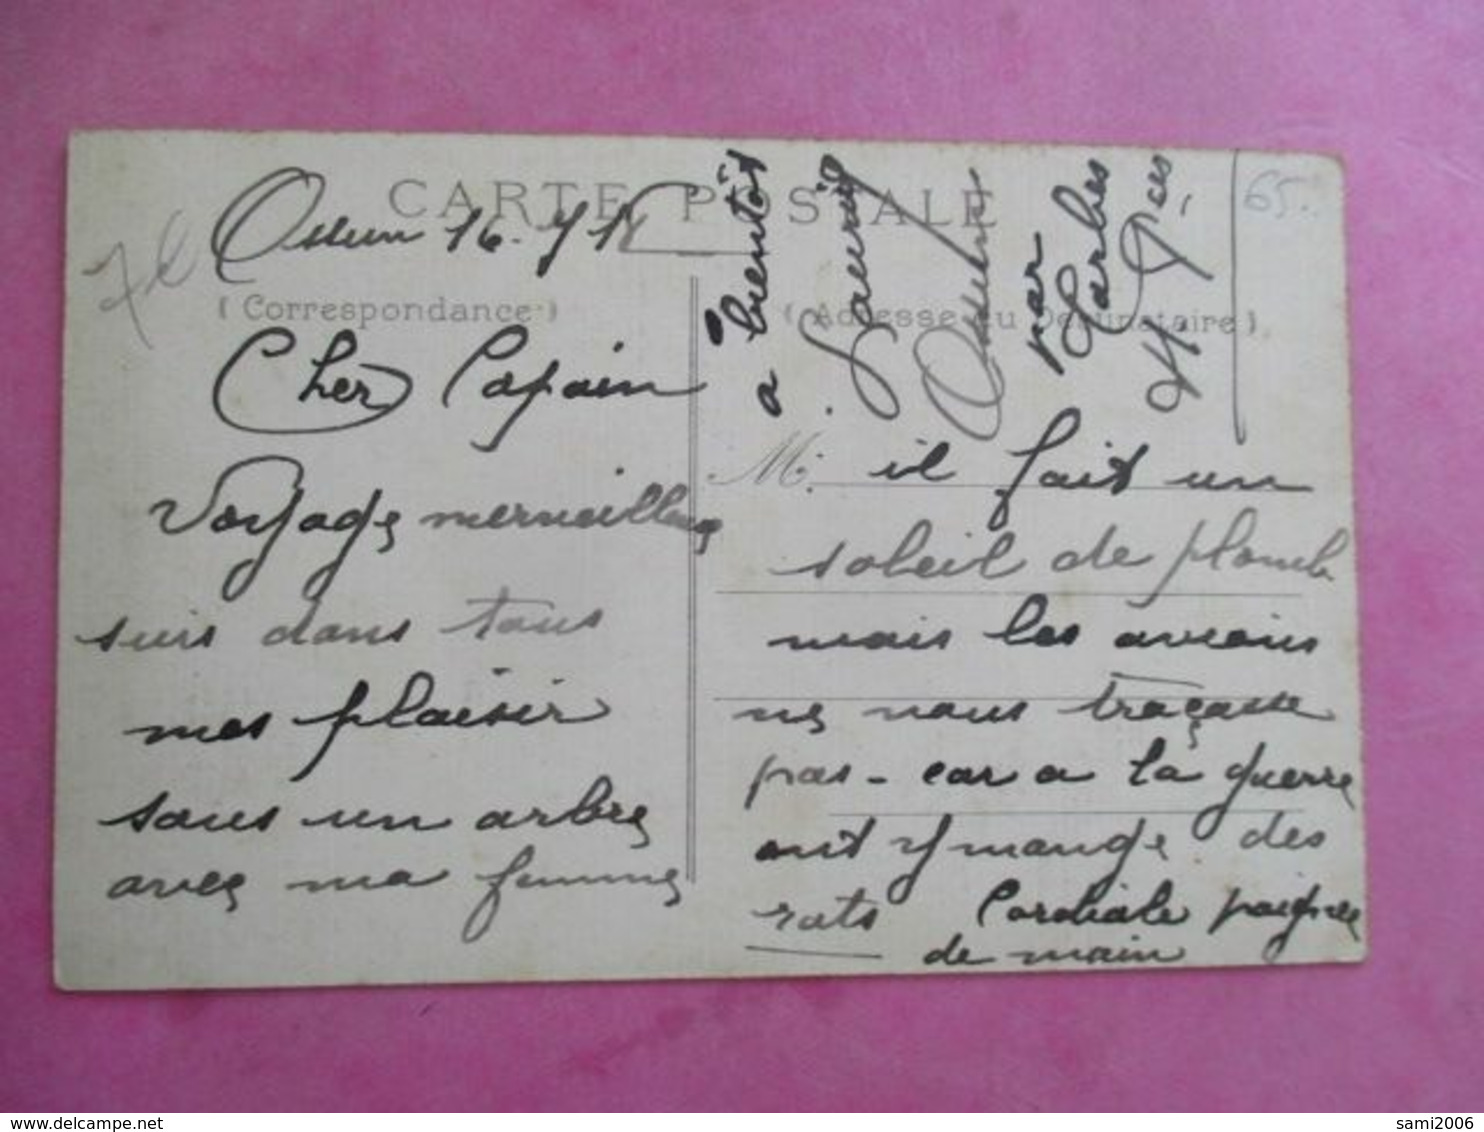 CARTE POSTALE
Ossun 16. 7 18
65.
(Correspondance)
(Adresse du Destinataire)
Cher Copain
Voyage merveilleux
suis dans tous
mes plaisir
sous un arbre
avec ma femme
M. il fait un
soleil de plomb
mais les avions
ne nous tracasse
pas - car a la guerre
ont y mange des
rats Cordiale poignée
de main
a bientôt
Ossun
par
Tarbes
Htes Pces
sami2006